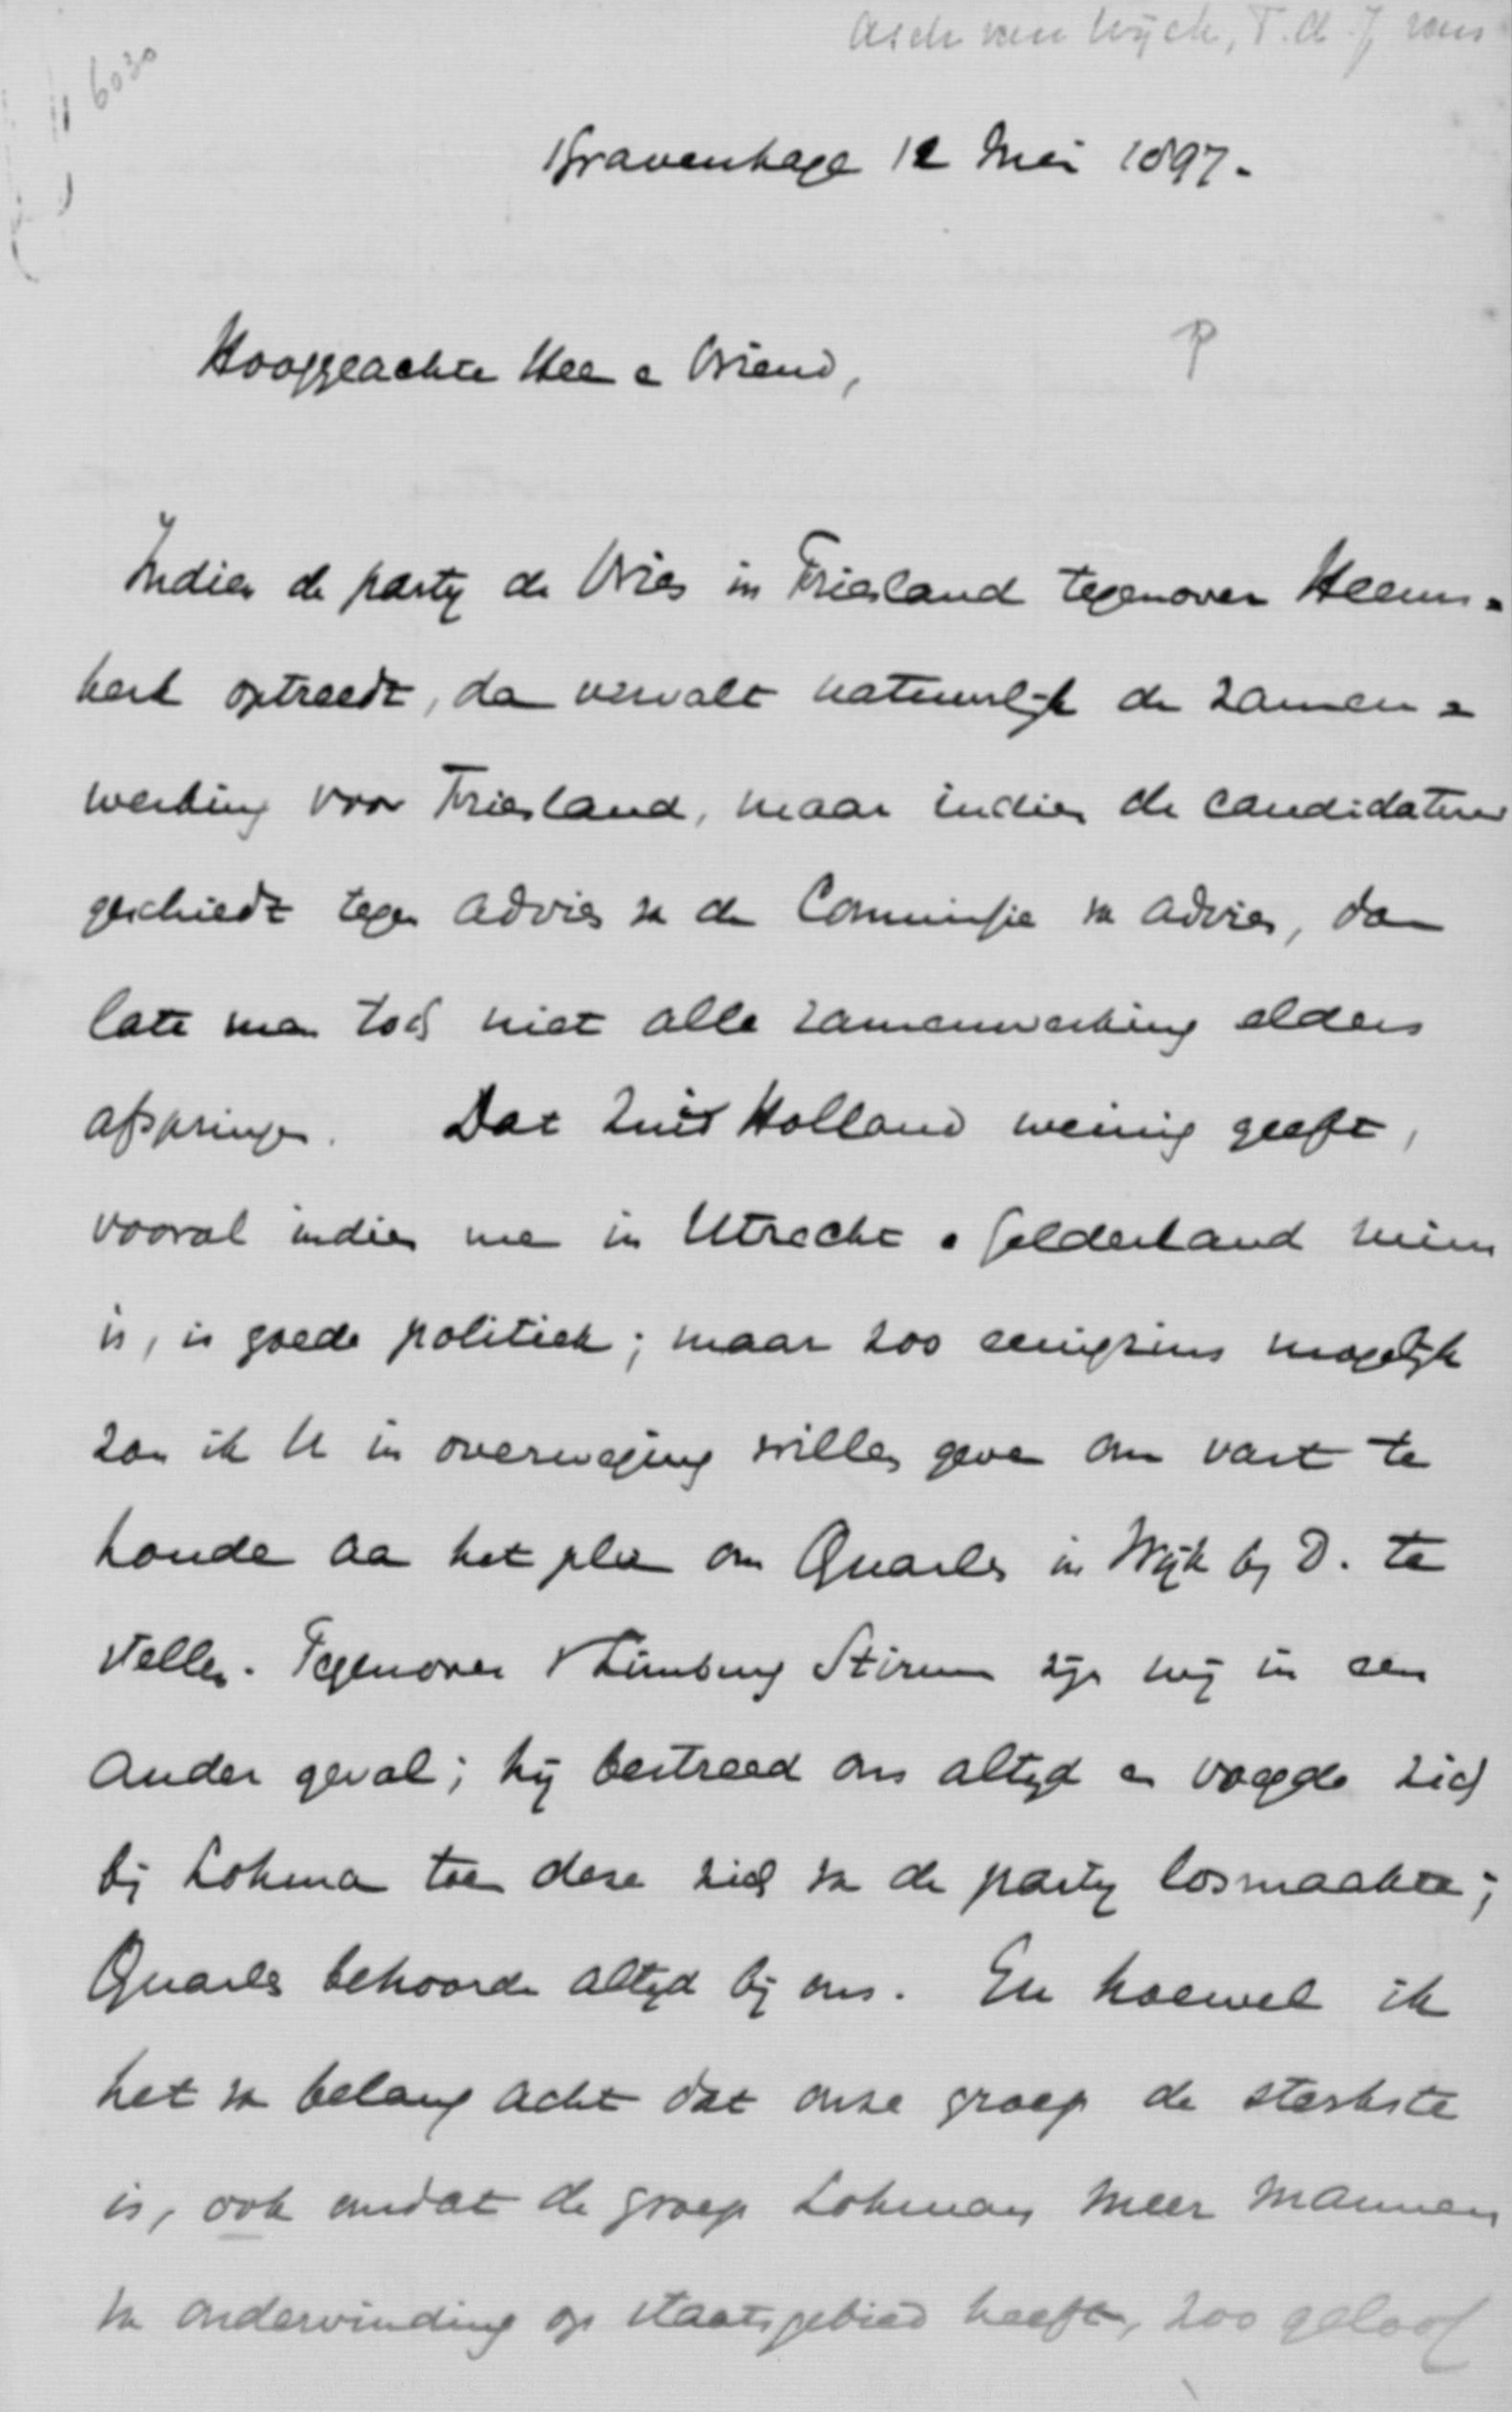 Asch van Wijck, T. A. J. van
6030
's Gravenhage 12 Mei 1897.
Hooggeachte Heer en Vriend,
Indien de party de Vries in Friesland tegenover Heems=
kerk optreedt, dan vervalt natuurlijk de zamen=
werking voor Friesland, maar indien de candidatuur
geschiedt tegen advies van de Commissie van advies, dan
late men toch niet alle zamenwerking elders
afspringen. Dat Zuid Holland weinig geeft,
vooral indien men in Utrecht en Gelderland ruim
is, is goede politiek; maar zoo eenigzins mogelijk
zou ik U in overweging willen geven om vast te
houden aan het plan om Quarles in Wijk bij D. te
stellen. Tegenover v Limburg Stirum zijn wij in een
ander geval; hij bestreed ons altijd en voegde zich
bij Lohman toen deze zich van de party losmaakte;
Quarles behoorde altijd bij ons. En hoewel ik
het van belang acht dat onze groep de sterkste
is, ook omdat de groep Lohman meer mannen
van ondervinding op staatsgebied heeft, zoo geloof